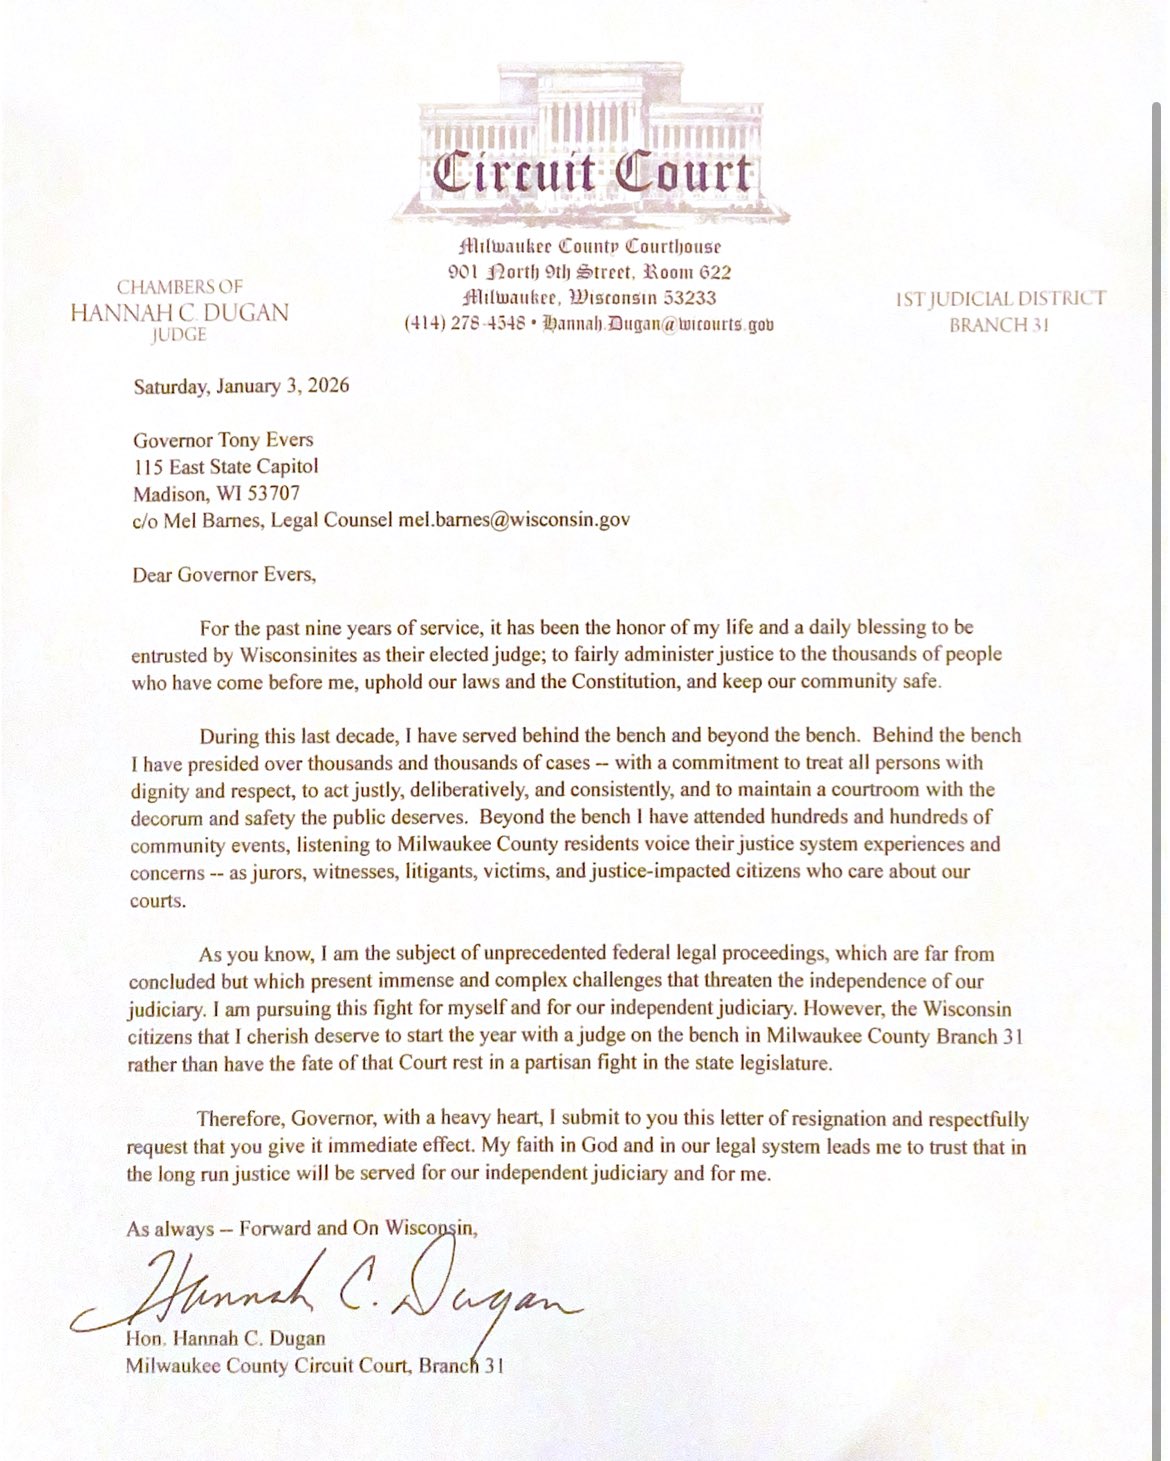 Circuit Court
Milwaukee County Courthouse
901 North 9th Street, Room 622
Milwaukee, Wisconsin 53233
(414) 278-4548 • Hannah.Dugan@wicourts.gov
CHAMBERS OF
HANNAH C. DUGAN
JUDGE
1ST JUDICIAL DISTRICT
BRANCH 31
Saturday, January 3, 2026
Governor Tony Evers
115 East State Capitol
Madison, WI 53707
c/o Mel Barnes, Legal Counsel mel.barnes@wisconsin.gov
Dear Governor Evers,
For the past nine years of service, it has been the honor of my life and a daily blessing to be
entrusted by Wisconsinites as their elected judge; to fairly administer justice to the thousands of people
who have come before me, uphold our laws and the Constitution, and keep our community safe.
During this last decade, I have served behind the bench and beyond the bench. Behind the bench
I have presided over thousands and thousands of cases -- with a commitment to treat all persons with
dignity and respect, to act justly, deliberatively, and consistently, and to maintain a courtroom with the
decorum and safety the public deserves. Beyond the bench I have attended hundreds and hundreds of
community events, listening to Milwaukee County residents voice their justice system experiences and
concerns -- as jurors, witnesses, litigants, victims, and justice-impacted citizens who care about our
courts.
As you know, I am the subject of unprecedented federal legal proceedings, which are far from
concluded but which present immense and complex challenges that threaten the independence of our
judiciary. I am pursuing this fight for myself and for our independent judiciary. However, the Wisconsin
citizens that I cherish deserve to start the year with a judge on the bench in Milwaukee County Branch 31
rather than have the fate of that Court rest in a partisan fight in the state legislature.
Therefore, Governor, with a heavy heart, I submit to you this letter of resignation and respectfully
request that you give it immediate effect. My faith in God and in our legal system leads me to trust that in
the long run justice will be served for our independent judiciary and for me.
As always – Forward and On Wisconsin,
Hannah C. Dugan
Hon. Hannah C. Dugan
Milwaukee County Circuit Court, Branch 31